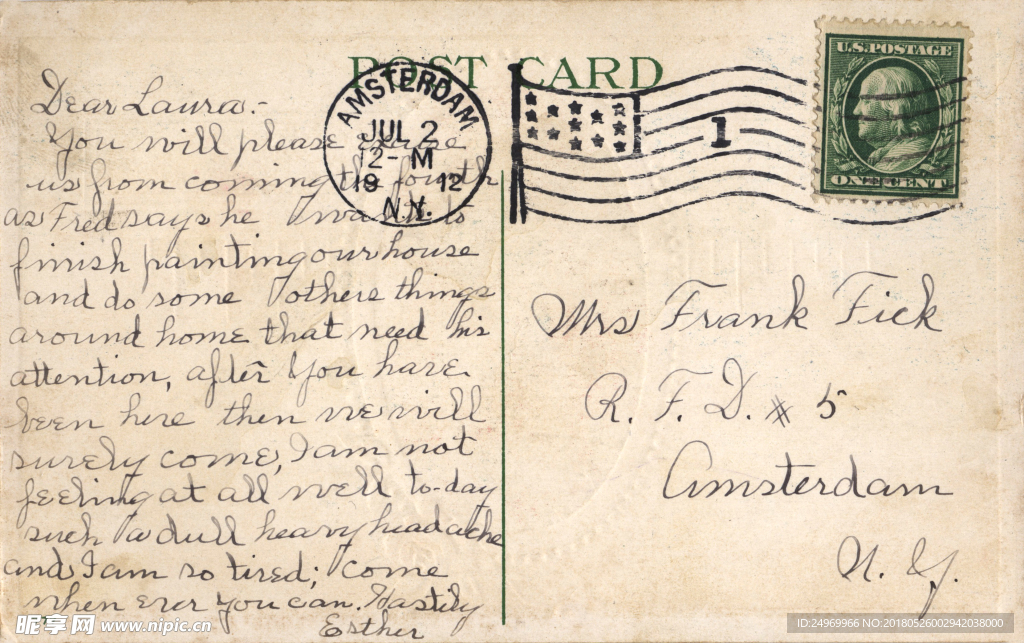 POST CARD
AMSTERDAM
JUL 2
12- M
19 12
N.Y.
1
U.S. POSTAGE
ONE CENT
Dear Laura:-
You will please
us from coming the fourth
as Fred says he wants to
finish painting our house
and do some othere things
around home that need his
attention, after you have
been here then we will
surely come, I am not
feeling at all well to-day
such a dull heavy headache
and I am so tired; come
when ever you can. Hastily
Esther
Mrs Frank Fick
R. F. D. # 5
Amsterdam
N. Y.
昵享网 www.nipic.cn
ID:24969966 NO:20180526002942038000